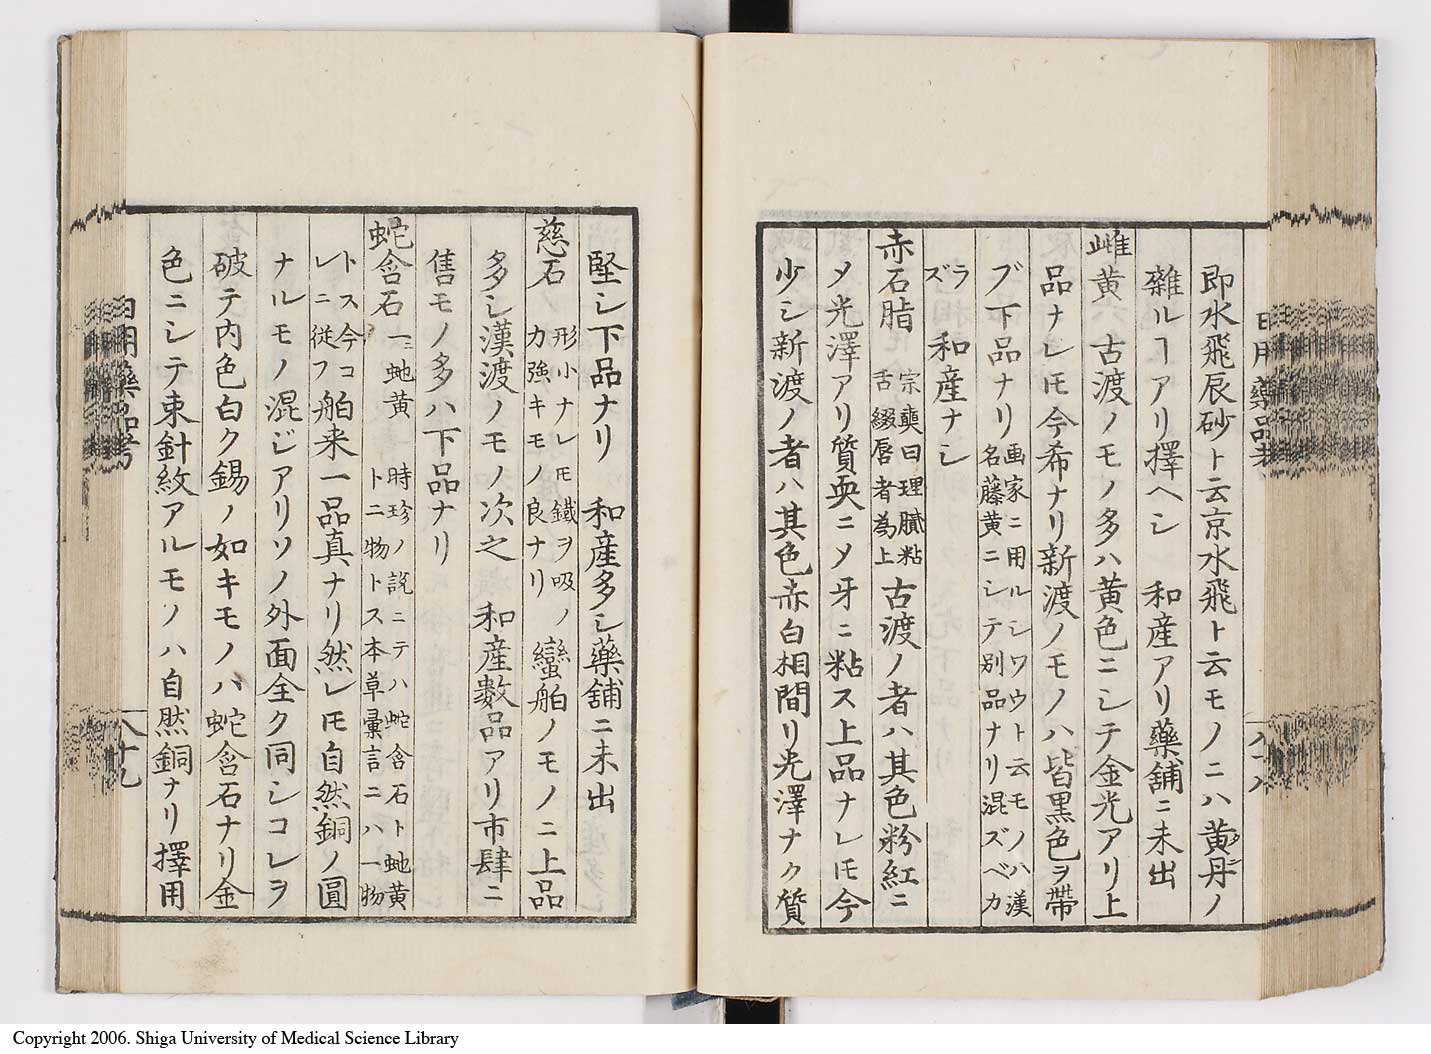 即水飛辰砂ト云京水飛ト云モノニハ黄丹ノ
雜ルヿアリ擇ヘシ 和産アリ藥舗ニ未出
雌黄六 古渡ノモノ多ハ黄色ニシテ金光アリ上
品ナレ𪜈今希ナリ新渡ノモノハ皆黒色ヲ帶
ブ下品ナリ 画家ニ用ルシワウト云モノハ漢
名藤黄ニシテ別品ナリ混ズベカ
ラ
ズ 和産ナシ
赤石脂 宗奭曰理膩粘
舌綴唇者為上 古渡ノ者ハ其色粉紅ニ
メ光澤アリ質耎ニメ牙ニ粘ス上品ナレ𪜈今
少シ新渡ノ者ハ其色赤白相間リ光澤ナク質
日用藥品考
八十八
堅シ下品ナリ 和産多シ藥舗ニ未出
慈石 形小ナレ𪜈鐵ヲ吸ノ
力強キモノ良ナリ 蠻舶ノモノニ上品
多シ漢渡ノモノ次之 和産數品アリ市肆ニ
售モノ多ハ下品ナリ
蛇含石 一ニ虵黄 時珍ノ説ニテハ蛇含石ト虵黄
ト二物トス本草彙言ニハ一物
トス今コ
レニ従フ 舶来一品真ナリ然レ𪜈自然銅ノ圓
ナルモノ混ジアリソノ外面全ク同シコレヲ
破テ内色白ク錫ノ如キモノハ蛇含石ナリ金
色ニシテ束針紋アルモノハ自然銅ナリ擇用
日用藥品考
八十九
Copyright 2006. Shiga University of Medical Science Library